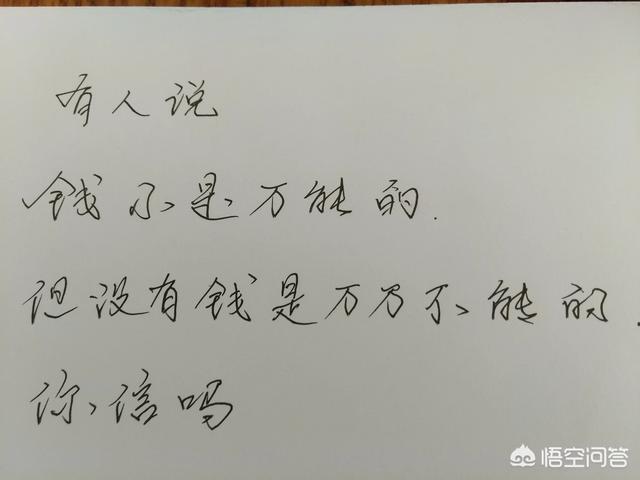 有人说
钱不是万能的.
但没有钱是万万不能的.
你信吗
悟空问答